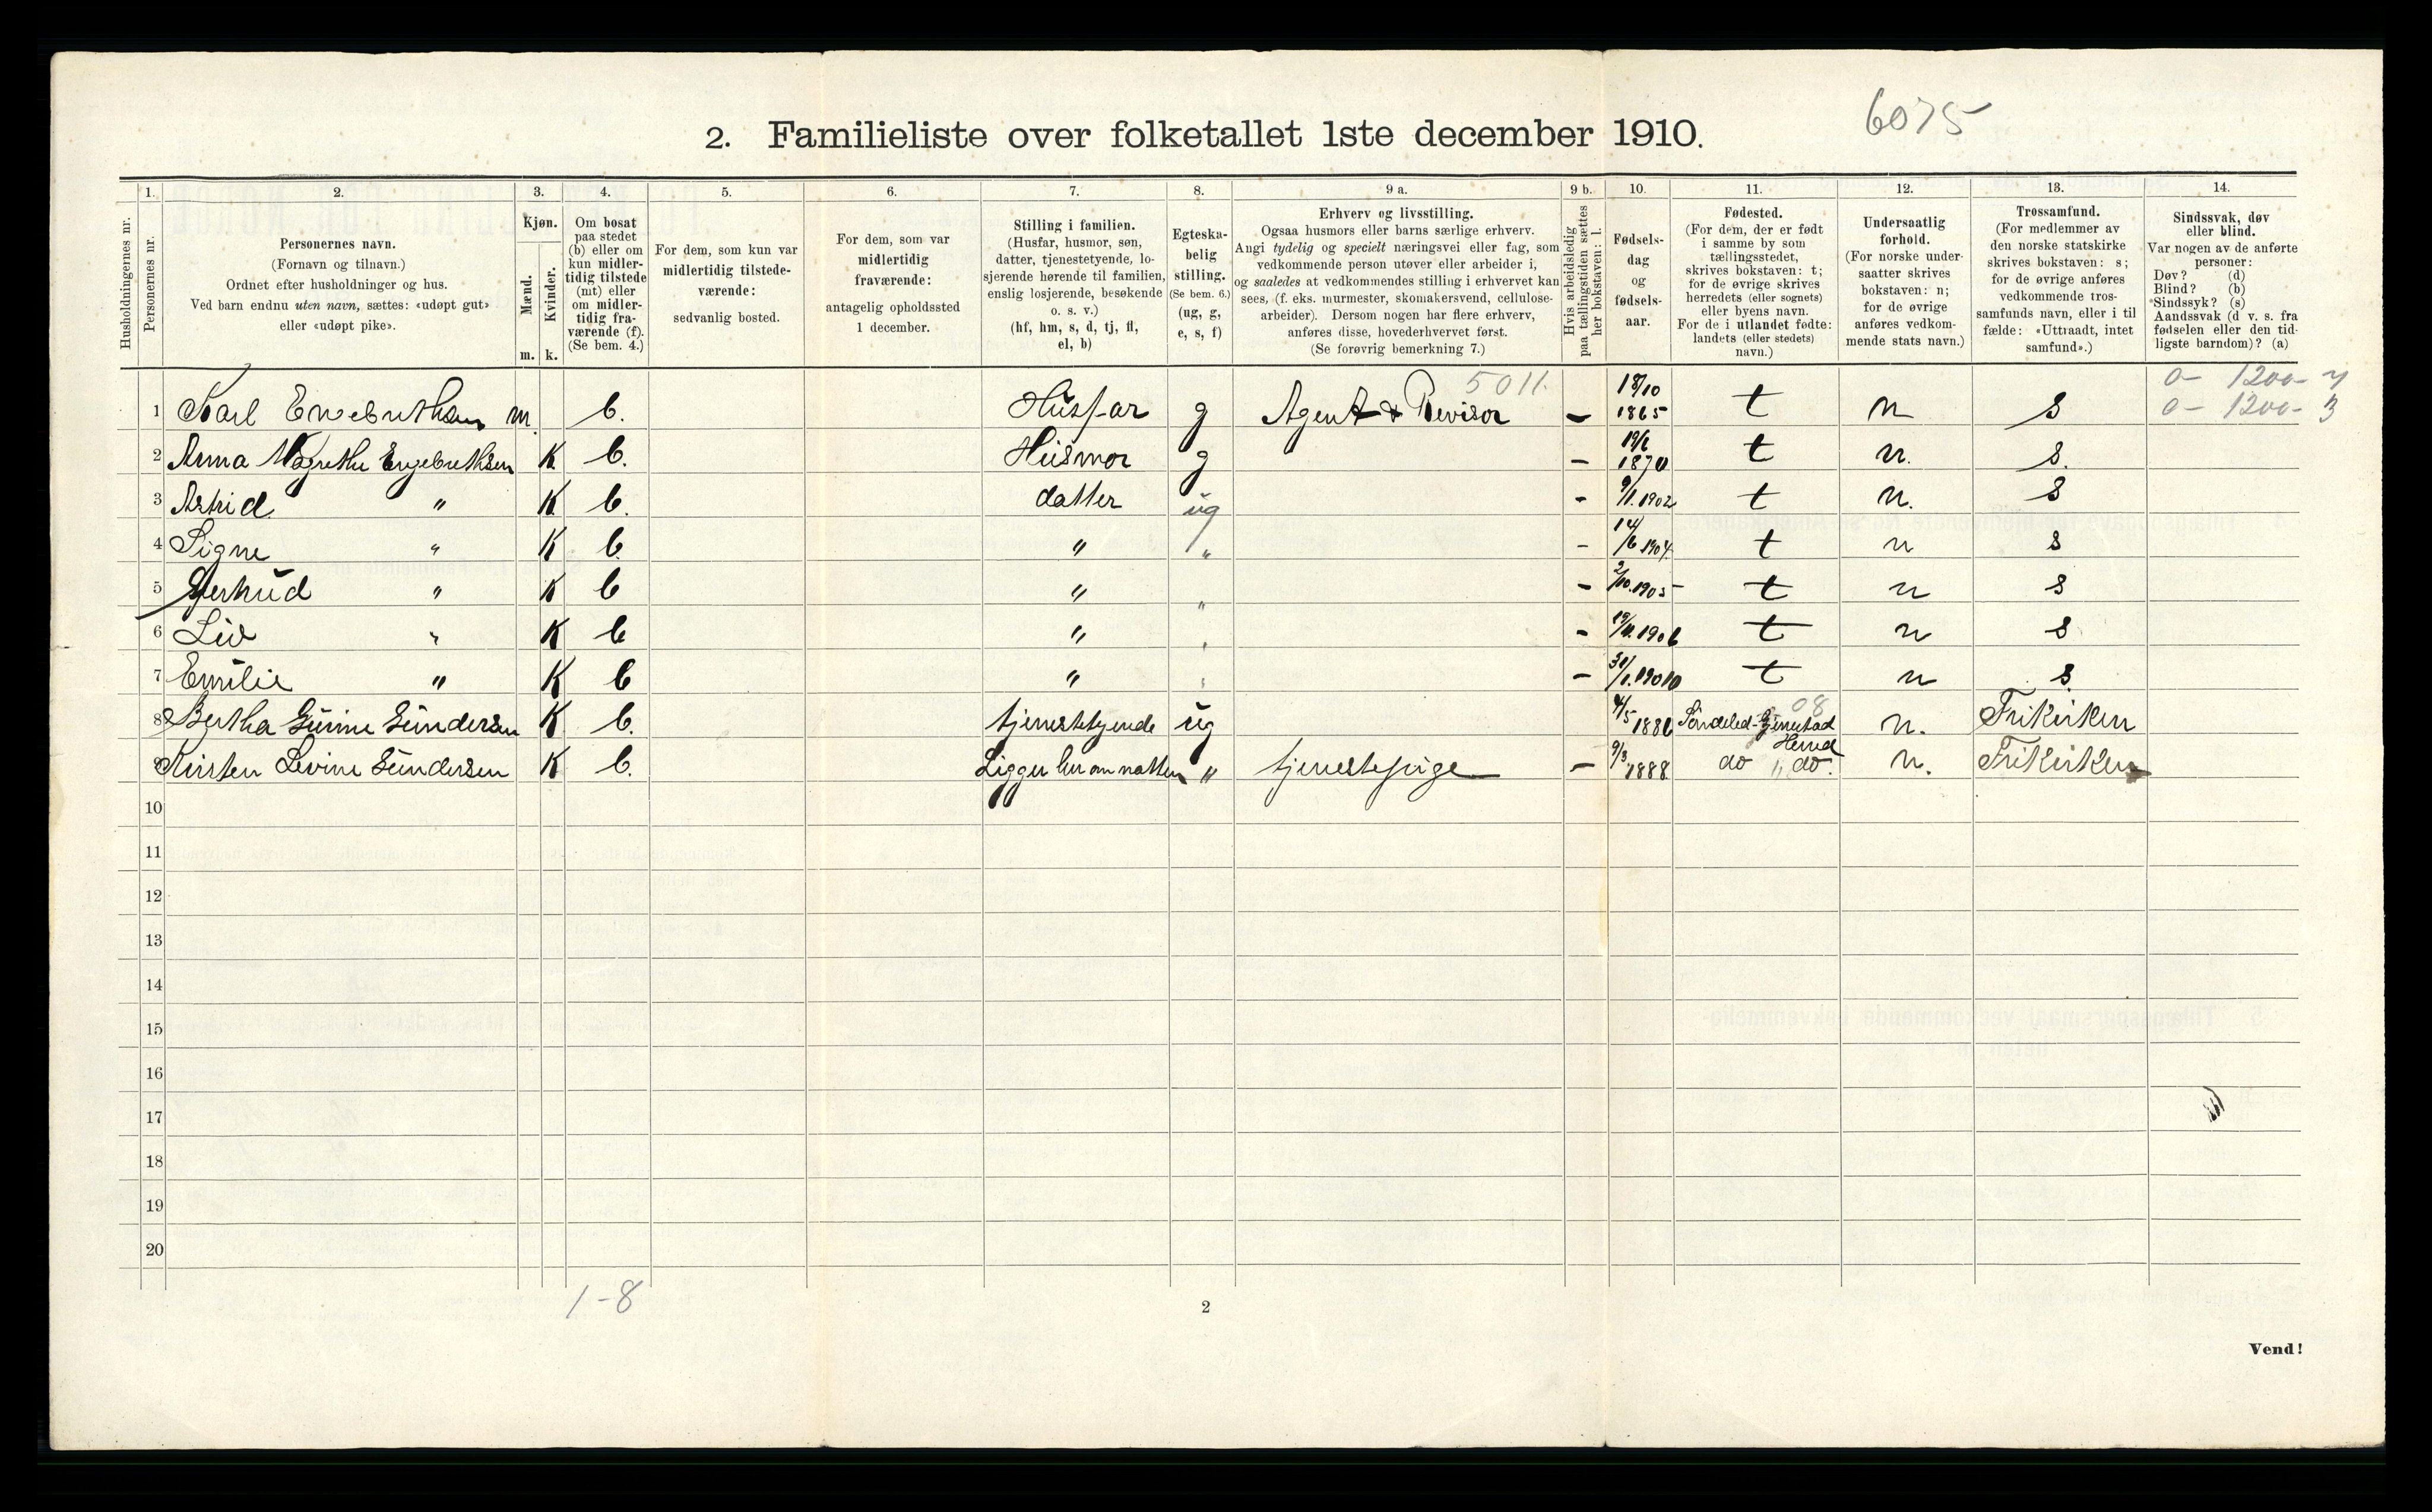 6075
2. Familieliste over folketallet 1ste december 1910.
Husholdningernes nr.
1.
Personernes nr.
2.
Personernes navn.
(Fornavn og tilnavn.)
Ordnet efter husholdninger og hus.
Ved barn endnu uten navn, sættes: «udøpt gut»
eller «udøpt pike».
3.
Kjøn.
Mænd.
Kvinder.
m. k.
4.
Om bosat
paa stedet
(b) eller om
kun midler-
tidig tilstede
(mt) eller
om midler-
tidig fra-
værende (f).
(Se bem. 4.)
5.
For dem, som kun var
midlertidig tilstede-
værende:
sedvanlig bosted.
6.
For dem, som var
midlertidig
fraværende:
antagelig opholdssted
1 december.
7.
Stilling i familien.
(Husfar, husmor, søn,
datter, tjenestetyende, lo-
sjerende hørende til familien,
enslig losjerende, besøkende
o. s. v.)
(hf, hm, s, d, tj, fl,
el, b)
8.
Egteska-
belig
stilling.
(Se bem. 6.)
(ug, g,
e, s, f)
9 a.
Erhverv og livsstilling.
Ogsaa husmors eller barns særlige erhverv.
Angi tydelig og specielt næringsvei eller fag, som
vedkommende person utøver eller arbeider i,
og saaledes at vedkommendes stilling i erhvervet kan
sees, (f. eks. murmester, skomakersvend, cellulose-
arbeider). Dersom nogen har flere erhverv,
anføres disse, hovederhvervet først.
(Se forøvrig bemerkning 7.)
9 b.
Hvis arbeidsledig
paa tællingstiden sættes
her bokstaven: l.
10.
Fødsels-
dag
og
fødsels-
aar.
11.
Fødested.
(For dem, der er født
i samme by som
tællingsstedet,
skrives bokstaven: t;
for de øvrige skrives
herredets (eller sognets)
eller byens navn.
For de i utlandet fødte:
landets (eller stedets)
navn.)
12.
Undersaatlig
forhold.
(For norske under-
saatter skrives
bokstaven: n;
for de øvrige
anføres vedkom-
mende stats navn.)
13.
Trossamfund.
(For medlemmer av
den norske statskirke
skrives bokstaven: s;
for de øvrige anføres
vedkommende tros-
samfunds navn, eller i til
fælde: «Uttraadt, intet
samfund».)
14.
Sindssvak, døv
eller blind.
Var nogen av de anførte
personer:
Døv? (d)
Blind? (b)
Sindssyk? (s)
Aandssvak (d v. s. fra
fødselen eller den tid-
ligste barndom)? (a)
5011
0- 1200-
1 Karl Engebrethsen m. b. Husfar g Agent & Revisor - 18/10 1865 t n s 0- 1200- 3
2 Anna Magrethe Engebrethsen K b. Husmor g - 1870 t n. s.
3 Astrid " K b. datter ug - 9/1.1902 t n. s
4 Signe " K b. " " - 14/6 1904 t n s
5 Gertrud " K b " " - 2/10.1905 t n s
6 Liv " K b " " - 19/11.1906 t n s
7 Emilie " K b " " - 31/1.1910 t n s.
08
8 Bertha Gurine Gundersen K b. tjenestetyende ug 4/5 1886 Søndeled-Gjerrestad Herred n. Frikirken
9 Kirsten Levine Gundersen K b. Ligger her om natten " tjenestepige - 9/3 1888 do " do. n. Frikirken
10
11
12
13
14
15
16
17
18
19
20
1-8
2
Vend!